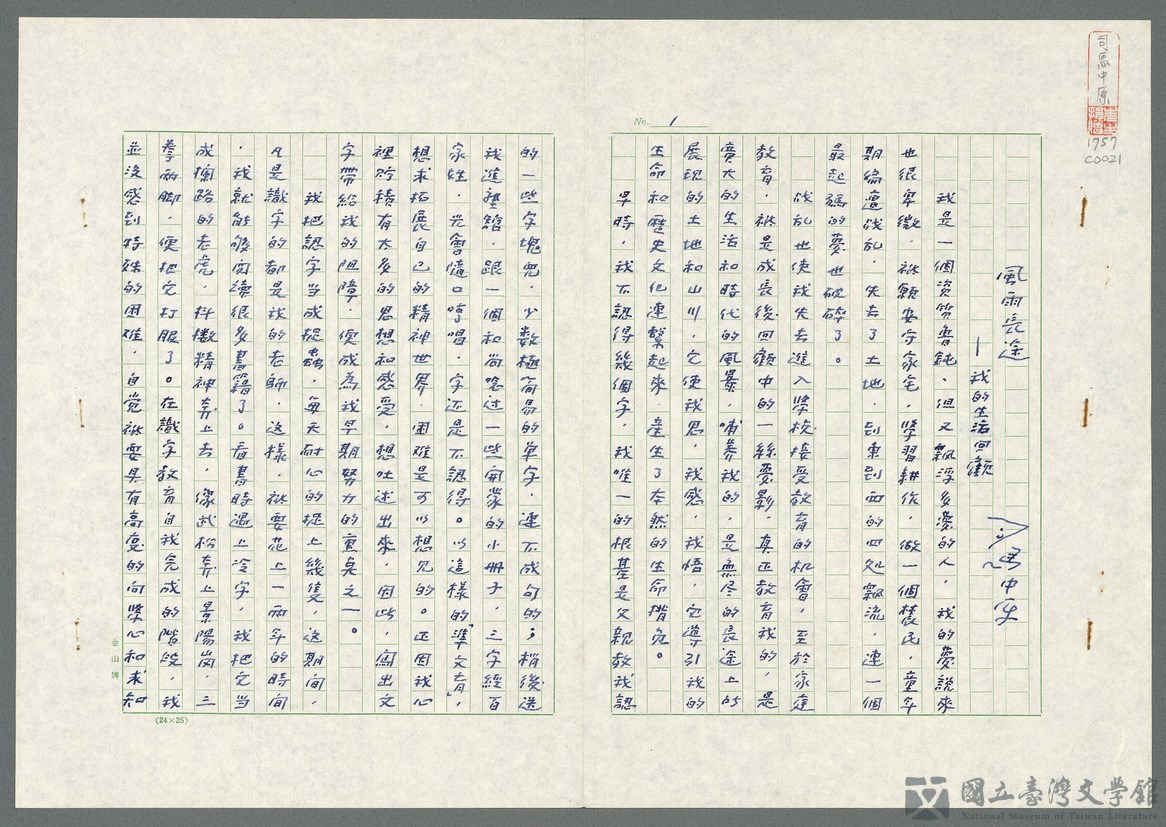 司馬中原
1757
C0021
No. 1
風雨長途
—我的生活回顧
司馬中原
我是一個資質魯鈍,但又飄浮多憂的人,我的憂說來
也很卑微,祇願安守家宅,學習耕作,做一個農民,童年
期編遭戰亂,失去了土地,到東到西的四处飄流,連一個
最起碼的夢也破碎了。
戰亂也使我失去進入學校接受教育的机會,至於家庭
教育,祇是成長後回顧中的一絲夢影,真正教育我的,是
廣大的生活和時代的風暴,哺養我的,是無尽的長途上的
展現的土地和山川,它使我思,我感,我悟,它導引我的
生命和歷史文化連繫起來,產生了本然的生命揹負。
早時,我不認得幾個字,我唯一的根基是父親教我認
的一些字塊兒,少數極简易的单字,連不成句的;稍後送
我進塾館,跟一個和尚唸过一些開蒙的小册子,三字經百
家姓,光會隨口哼唱,字还是不認得。以這樣的「準文盲」,
想求拓展自己的精神世界,困难是可以想見的。正因我心
裡貯積有太多的思想和感受,想吐述出來,因此,闖出文
字帶給我的阻障,便成為我早期努力的重点之一。
我把認字当成捉蟲,每天耐心的捉上幾隻,这期间,
凡是識字的都是我的老師,这樣,祇要花上一兩年的時间
,我就能够闲讀很多書籍了。看書時遇上冷字,我把它当
成攔路的老虎,抖擻精神奔上去,像武松奔上景陽岗,三
拳兩脚,便把它打服了。在識字教育自我完成的階段,我
並沒感到特殊的困难,自覚祇要具有高度的向學心和求知
金山牌
(24×25)
國立臺灣文學館
National Museum of Taiwan Literature